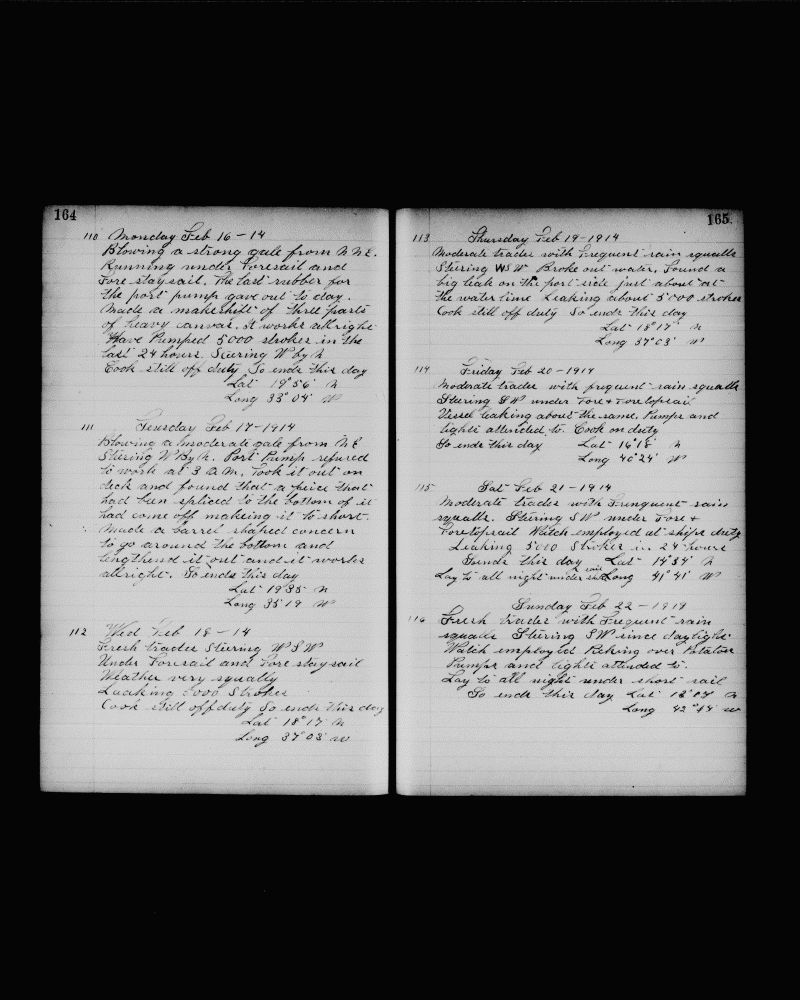 164
110 Monday Feb 16 - 14
Blowing a strong gale from N N E.
Running under Foresail and
Fore staysail. The last rubber for
the port pump gave out to day.
Made a makeshift of three parts
of heavy canvas. It works allright
Have Pumped 5000 strokes in the
last 24 hours Steering W by N
Cook still off duty So ends this day
Lat 19° 56' N
Long 33° 04' W
111 Teusday Feb 17 - 1914
Blowing a moderate gale from N E
Steering W By N. Port Pump refused
to work at 3 a.m. Took it out on
deck and found that a peice that
had been spliced to the bottom of it
had come off makeing it to short.
Made a barrel shaped concern
to go around the bottom and
lengthend it out and it works
allright. So ends this day
Lat 19° 35' N
Long 35° 19 W
112 Wed Feb 18 - 14
Fresh trades Steering W S W
Under Foresail and Fore staysail
Weather very squally
Leaking 5000 Strokes
Cook still off duty So ends this day
Lat 18° 17' N
Long 37° 03' W
165.
113 Thursday Feb 19 - 1914
Moderate trades with frequent rain squalls
Steering WSW Broke out water. Found a
big leak on the port side just about at
the water line Leaking about 5000 strokes
Cook still off duty So ends this day
Lat 18° 17' N
Long 37° 03' W
114 Friday Feb 20 - 1914
Moderate trades with frequent rain squalls
Steering SW under Fore & Foretopsail
Vessel leaking about the same. Pumps and
lights attended to. Cook on duty
So ends this day Lat 16° 18' N
Long 40° 24' W
115 Sat Feb 21 - 1914
Moderate trades with Frequent rain
squalls. Steering SW under Fore &
Foretopsail Watch employed at ships duty
Leaking 5010 Strokes in 24 hours
So ends this day Lat 14° 34' N
Lay to all night under sail Long 41° 41' W
Sunday Feb 22 - 1914
116 Fresh trades with Frequent rain
squalls Steering SW since daylight
Watch employed Picking over Potatoes
Pumps and lights attended to.
Lay to all night under short sail
So ends this day Lat 13° 07' N
Long 42° 14' W